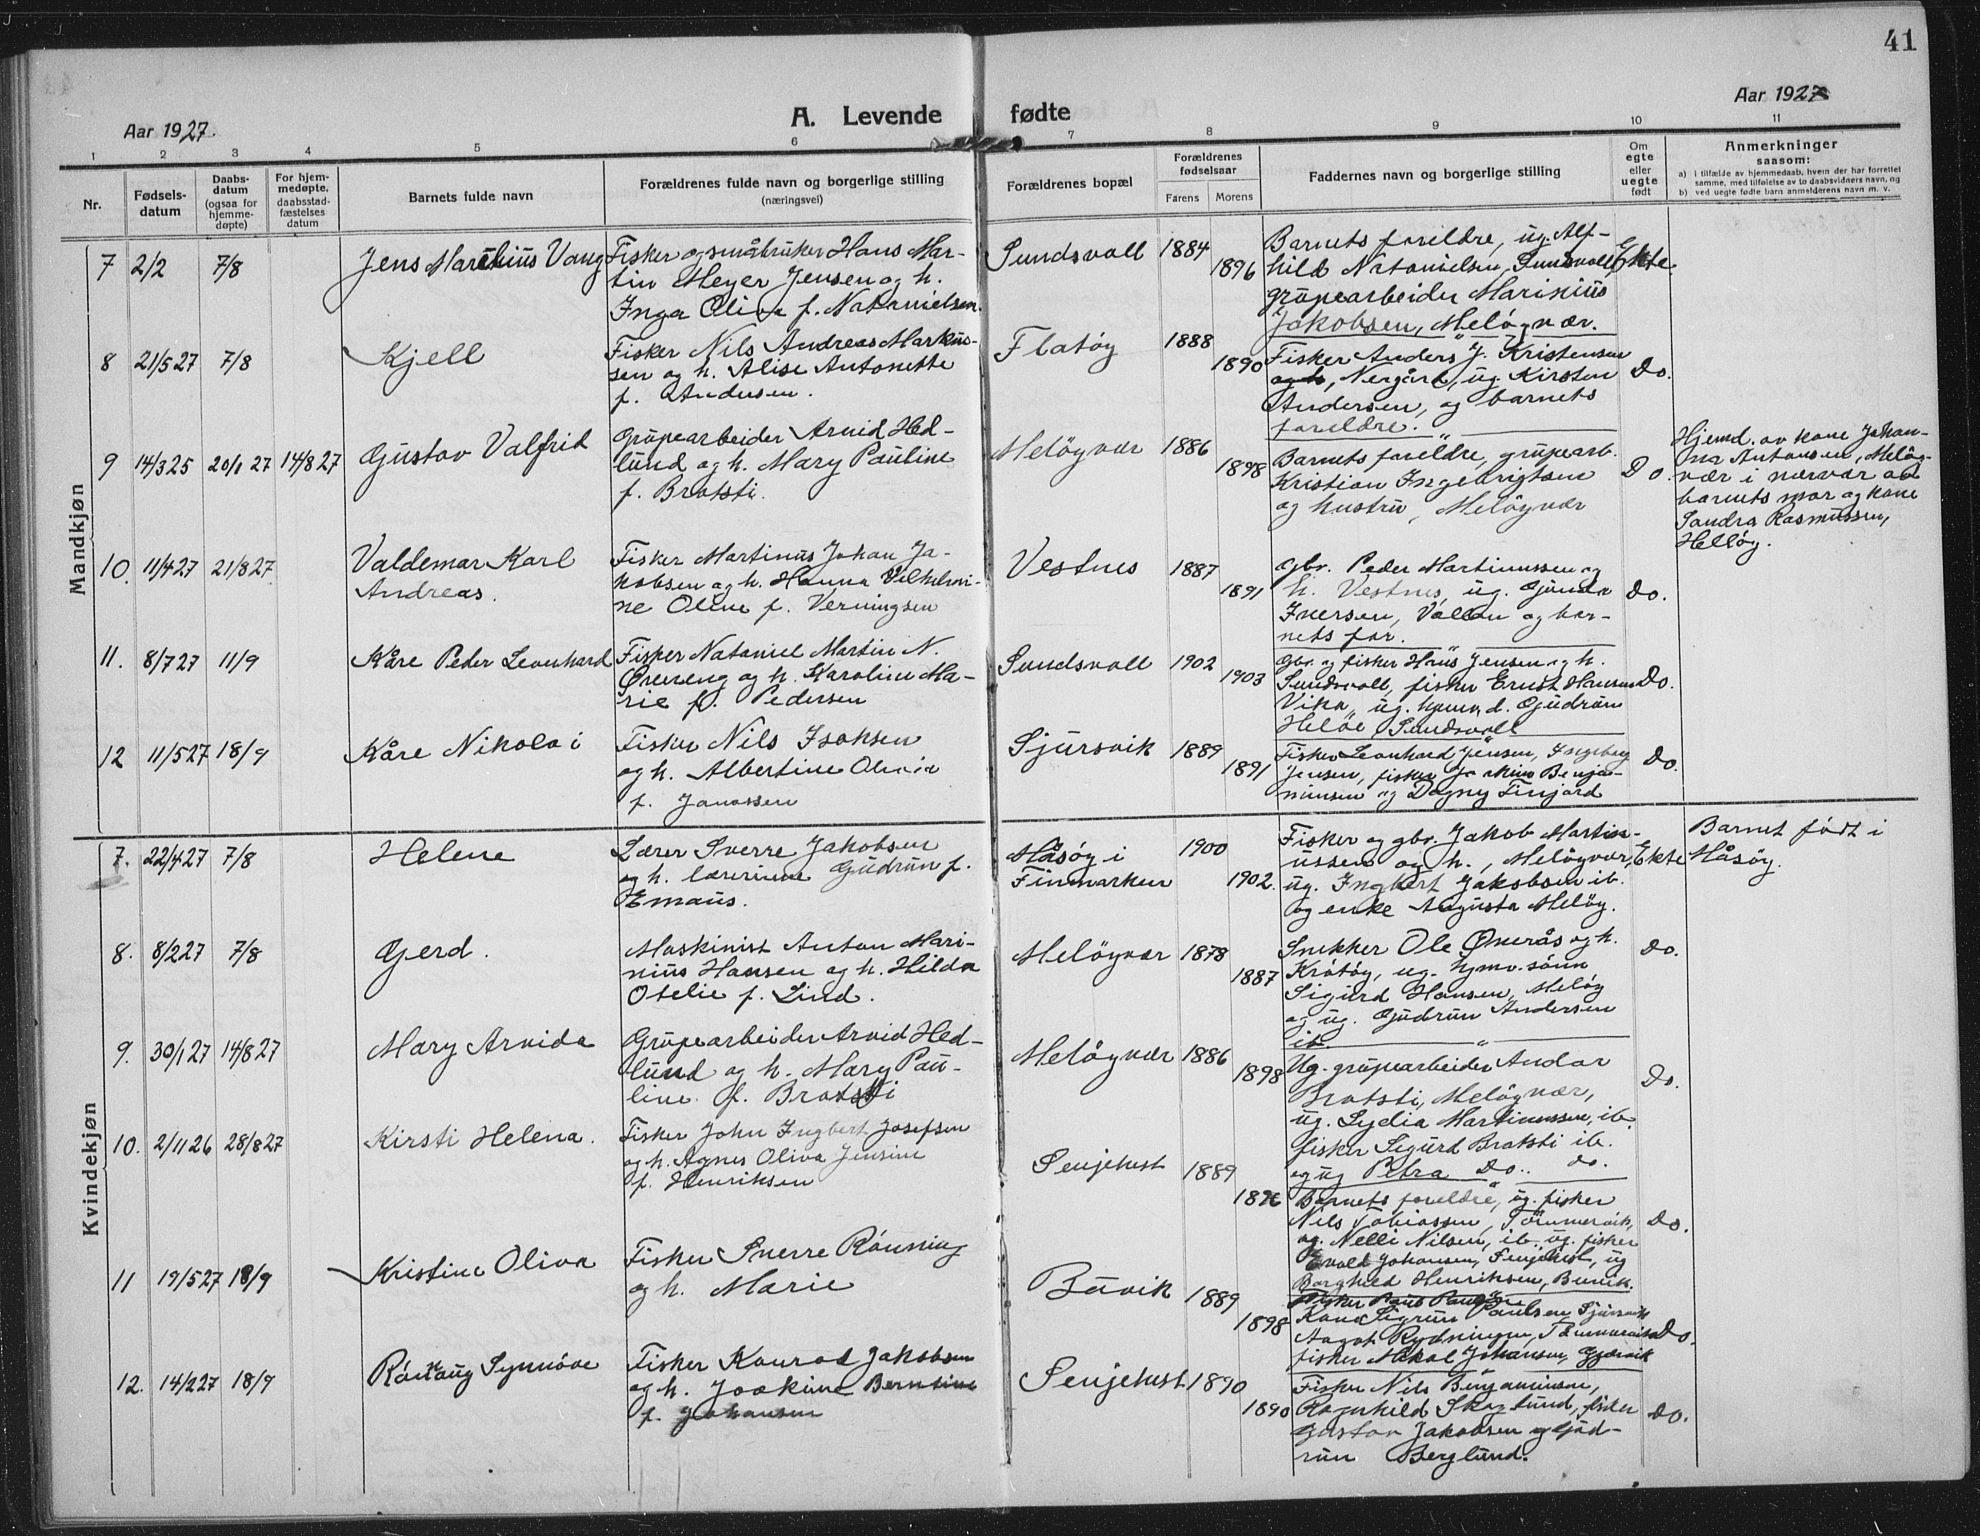 41
Aar 1927.
A. Levende fødte
Aar 1927
1 2 3 4 5 6 7 8 9 10 11
Nr.
Fødsels-
datum
Daabs-
datum
(ogsaa for
hjemme-
døpte)
For hjem-
medøpte,
daabsstad-
fæstelses
datum
Barnets fulde navn
Forældrenes fulde navn og borgerlige stilling
(næringsvei)
Forældrenes bopæl
Forældrenes
fødselsaar
Farens Morens
Faddernes navn og borgerlige stilling
Om
egte
eller
uegte
født
Anmerkninger
saasom:
a) i tilfælde av hjemmedaab, hvem der har forrettet
samme, med tilføielse av to daabsvidners navn, og
b) ved uegte fødte barn anmelderens navn m. v.
Mandkjøn
7 2/2 7/8
Jens Marthius Vang
Fisker og småbruker Hans Mar-
tin Meyer Jensen og h.
Inga Oliva f. Natanielsen.
Sundsvoll 1884 1896
Barnets foreldre, ug. Alf-
hild Natanielsen, Sundsvoll,
grubearbeider Marinius
Jakobsen, Meløyvær.
Ekte
8 21/5 27 7/8
Kjell
Fisker Nils Andreas Markus-
sen og h. Alise Antonette
f. Andersen.
Flatøy 1888 1890
Fisker Anders J. Kristensen
og h, Nergård, ug. Kirsten
Andersen, og barnets
foreldre.
Do.
9 14/3 25 20/1 27 14/8 27
Gustav Valfrid
Grubearbeider Arvid Hed-
lund og h. Mary Pauline
f. Bratsti.
Meløyvær 1886 1898
Barnets foreldre, grubearb.
Kristian Ingebrigtsen
og hustru, Meløyvær
Do.
Hjemd. av kone Johan-
na Antonsen, Meløy-
vær i nærvær av
barnets mor og kone
Sandra Rasmussen,
Helløy.
10. 11/4 27 21/8 27
Valdemar Karl
Andreas.
Fisker Martinus Johan Ja-
kobsen og h. Hanna Vilhelmi-
ne Oline f. Verningsen
Vestnes 1887 1891
Gbr. Peder Martinussen og
h. Vestnes, ug. Gjunda
Iversen, Vollen og bar-
nets far.
Do.
11. 8/7 27 11/9
Kåre Peder Leonhard
Fisker Nataniel Martin N.
Øvereng og h. Karoline Ma-
rie f. Pedersen
Sundsvoll 1902 1903
Gbr. og fisker Hans Jensen og h.
Sundsvoll, fisker Ernst Hansen
Vika, ug. hjemv. d. Gudrun
Heløe, Sundsvoll
Do.
12 11/5 27 18/9
Kåre Nikolai
Fisker Nils Isaksen
og h. Albertine
f. Janossen
Sjursvik 1889 1891
Fisker Leonhard Jensen, Ingeborg
Jensen, fisker Joakim Benja-
minsen og Dagny Finjord
Do.
Kvindekjøn
7. 22/4 27 7/8
Helene
Lærer Sverre Jakobsen
og h. lærerinne Gudrun f.
Emaus.
Måsøy i
Finmarken
1900 1902.
Fisker og gbr. Jakob Martin-
ussen og h., Meløyvær,
ug. Ingbert Jakobsen ib.
og enke Augusta Meløy.
Ekte
Barnet født i
Måsøy.
8. 8/2 27 7/8
Gerd.
Maskinist Anton Mari-
nius Hansen og h. Hilda
Otelie f. Lind.
Meløyvær 1878 1887
Snekker Ole Øverås og h.
Kråtøy, ug. hjmv. sønn
Sigurd Hansen, Meløy
og ug. Gudrun Andersen
ib.
Do.
9. 30/1 27 14/8 27
Mary Arvida
Grubearbeider Arvid Hed-
lund og h. Mary Pau-
line f. Bratsti
Meløyvær 1886 1898
Ug. grubearbeider Andor
Bratsti, Meløyvær,
ug. Lydia Martinussen, ib.
fisker Sigurd Bratsti ib.
og ug Petra Do.. do.
Do.
10. 2/11 26 28/8 27
Kirsti Helena.
Fisker John Ingbert Josefsen
og h. Agnes Oliva Jensine
f. Henriksen
Senjehest 1889 1896
Barnets foreldre, ug. fisker
Nils Tobiassen, Tømmervik,
og Nelli Nilsen, ib., ug. fisker
Evald Johansen, Senjehest, ug
Borghild Henriksen, Buvik.
Do.
11 19/5 27 18/9
Kristine Oliva
Fisker Sverre Rønning
og h. Marie
Buvik 1889 1898
Kone Sigrun Paulsen Sjursvik
Aagot Rydningen, Tømmervik
fisker Mikal Johansen, Gjærvik
Do.
12. 14/2 27 18/9
Røslaug Synnøve
Fisker Konrad Jakobsen
og h. Joakine Berntine
f. Johansen
Senjehest 1890 1890
Fisker Nils Benjaminsen,
Ragnhild Skoglund, fisker
Gustav Jakobsen og Gud-
run Berglund.
Do.